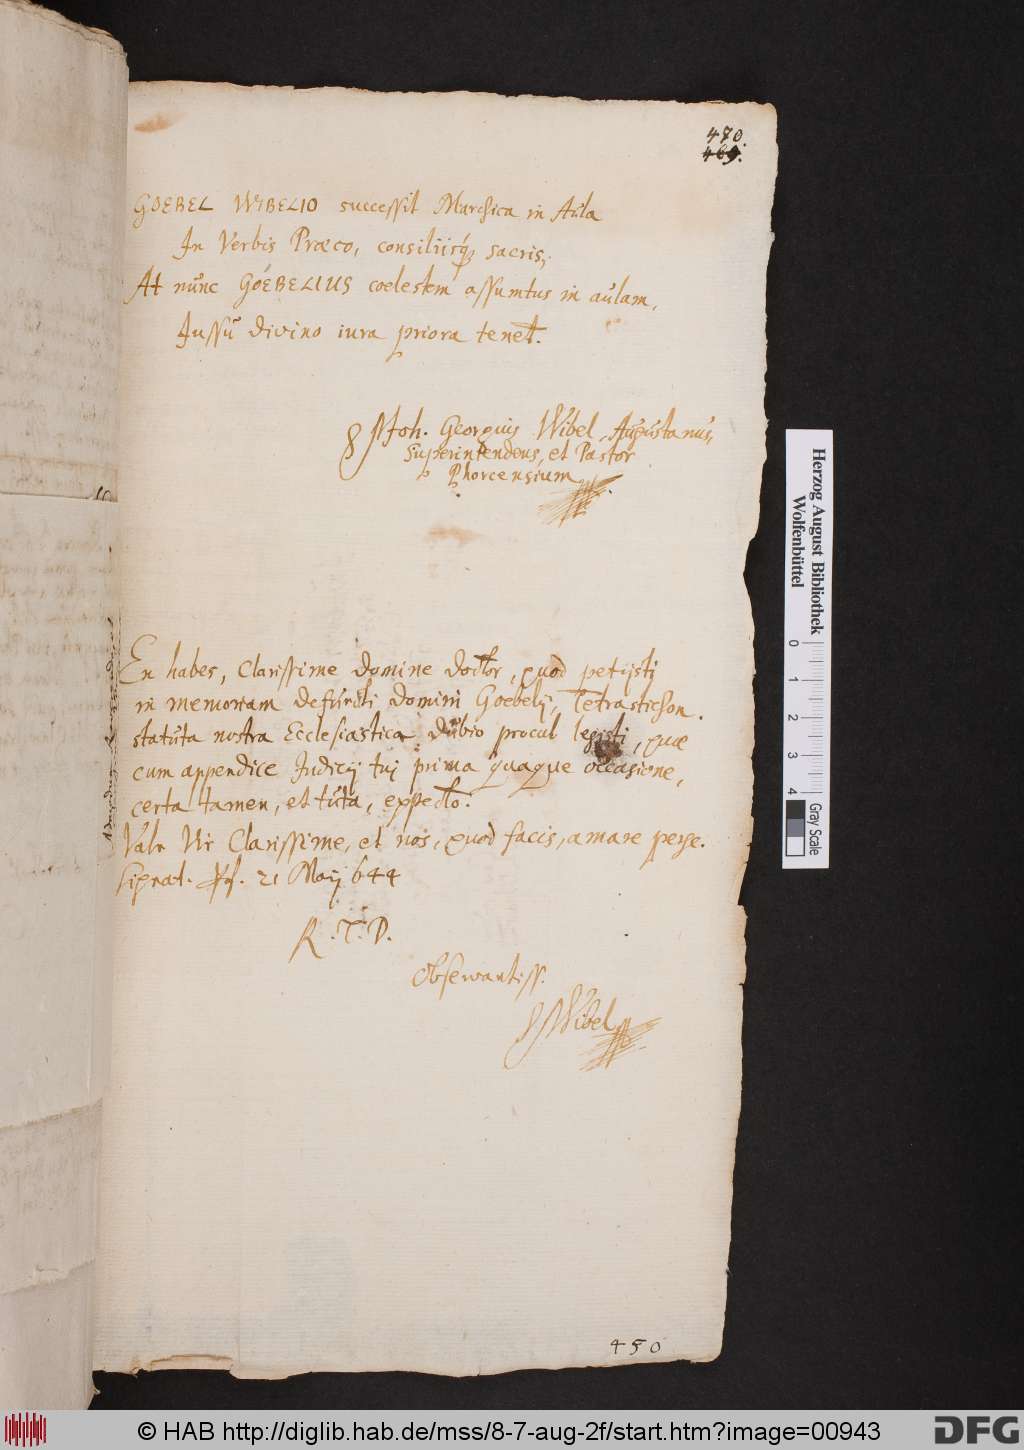 470.
469.
GOEBEL WIBELIO successit Marchica in Aula
In Verbis Præco, consiliisq; sacris;
At nunc GOEBELIUS coelestem assumtus in aulam,
Jussu divino iura priora tenet.
Joh. Georgius Wibel, Augustanus,
Superintendens, et Pastor
Phorcensium
En habes, Clarissime domine doctor, quod petijsti
in memoriam defuncti domini Goebelij, Tetrastichon.
statuta nostra Ecclesiastica dubio procul legisti, quæ
cum appendice Judicij tui prima quaque occasione,
certa tamen, et tuta, expecto.
Vale Vir Clarissime, et nos, quod facis, amare perge.
21 Maij 644
R. T. D.
Observantiss.
Wibel
450
Herzog August Bibliothek
Wolfenbüttel
0 1 2 3 4
Gray Scale
© HAB http://diglib.hab.de/mss/8-7-aug-2f/start.htm?image=00943
DFG